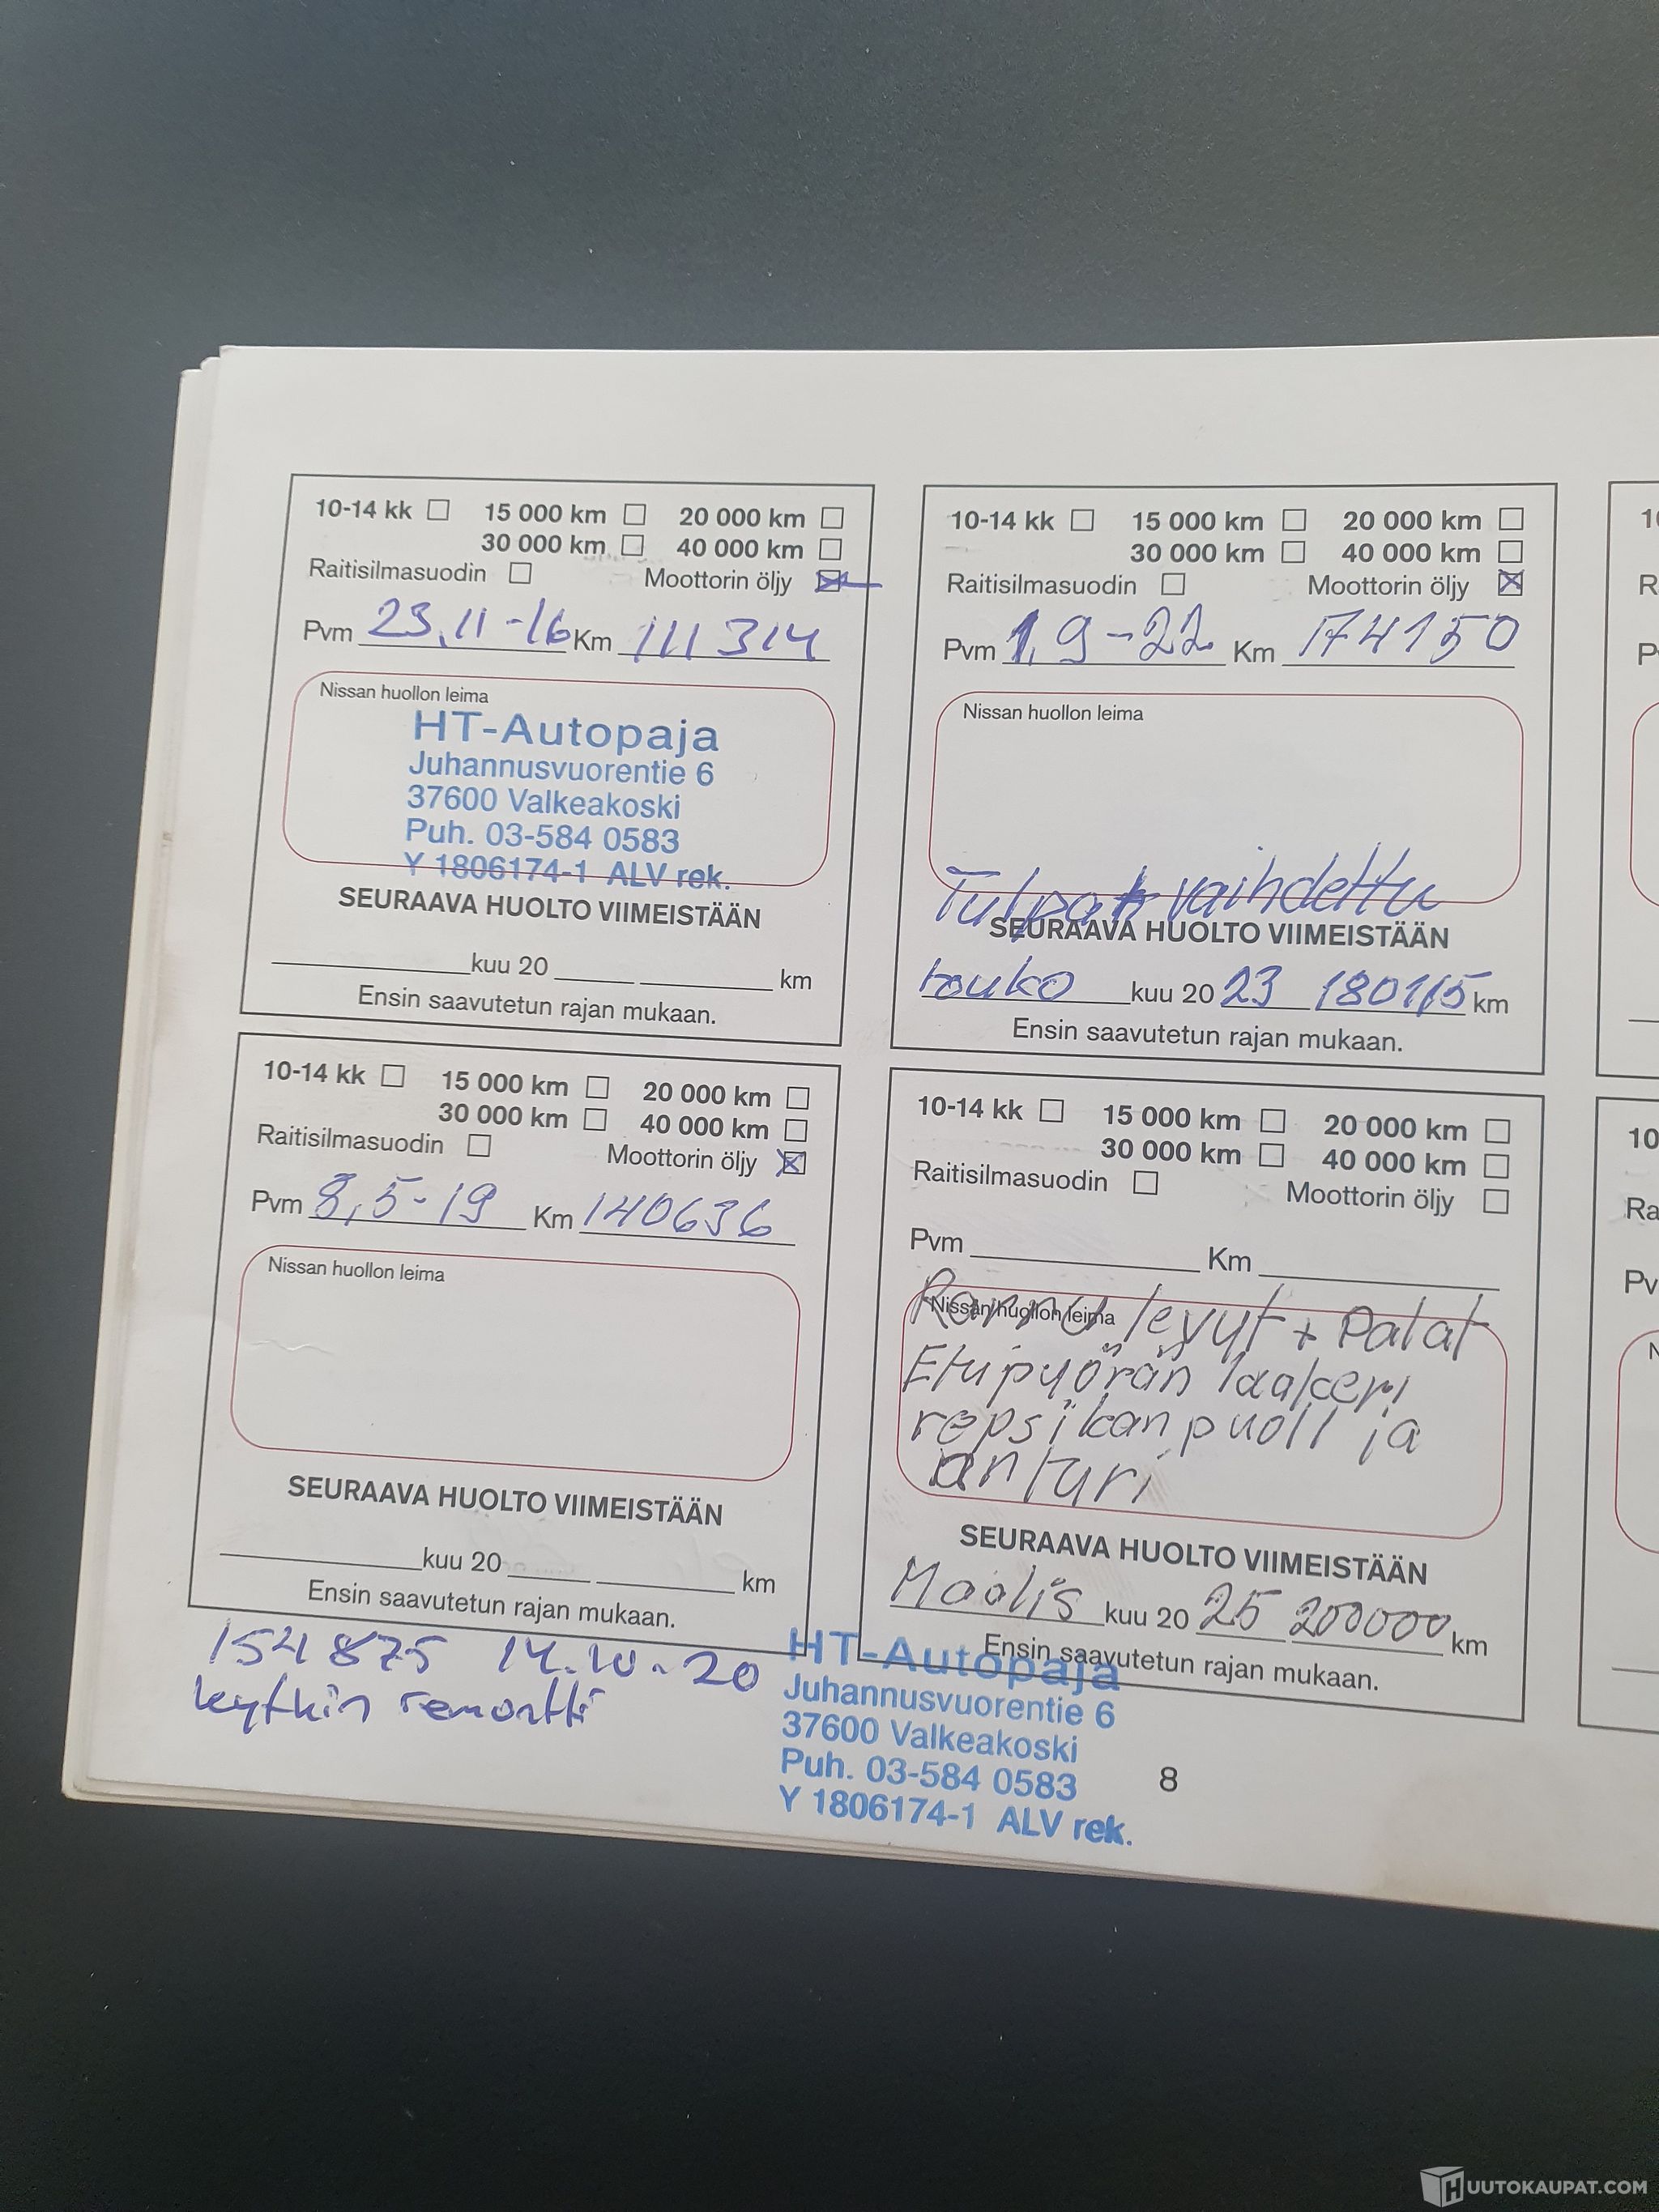 10-14 kk 15 000 km 20 000 km
30 000 km 40 000 km
Raitisilmasuodin Moottorin öljy
Pvm 23.11-16 Km 111 314
Nissan huollon leima
HT-Autopaja
Juhannusvuorentie 6
37600 Valkeakoski
Puh. 03-584 0583
Y 1806174-1 ALV rek.
SEURAAVA HUOLTO VIIMEISTÄÄN
kuu 20 km
Ensin saavutetun rajan mukaan.
10-14 kk 15 000 km 20 000 km
30 000 km 40 000 km
Raitisilmasuodin Moottorin öljy
Pvm 8,5-19 Km 140636
Nissan huollon leima
SEURAAVA HUOLTO VIIMEISTÄÄN
kuu 20 km
Ensin saavutetun rajan mukaan.
154 875 14.10.20
kytkin remontti
HT-Autopaja
Juhannusvuorentie 6
37600 Valkeakoski
Puh. 03-584 0583
Y 1806174-1 ALV rek.
10-14 kk 15 000 km 20 000 km
30 000 km 40 000 km
Raitisilmasuodin Moottorin öljy
Pvm 1,9-22 Km 174150
Nissan huollon leima
Tulpat vaihdettu
SEURAAVA HUOLTO VIIMEISTÄÄN
touko kuu 20 23 km
Ensin saavutetun rajan mukaan.
10-14 kk 15 000 km 20 000 km
30 000 km 40 000 km
Raitisilmasuodin Moottorin öljy
Pvm Km
Nissan huollon leima
levyt + Palat
Etupyörän laakeri
repsikan puoli ja
anturi
SEURAAVA HUOLTO VIIMEISTÄÄN
Maalis kuu 20 25 200000 km
Ensin saavutetun rajan mukaan.
8
10
Ra
Pv
HUUTOKAUPAT.COM